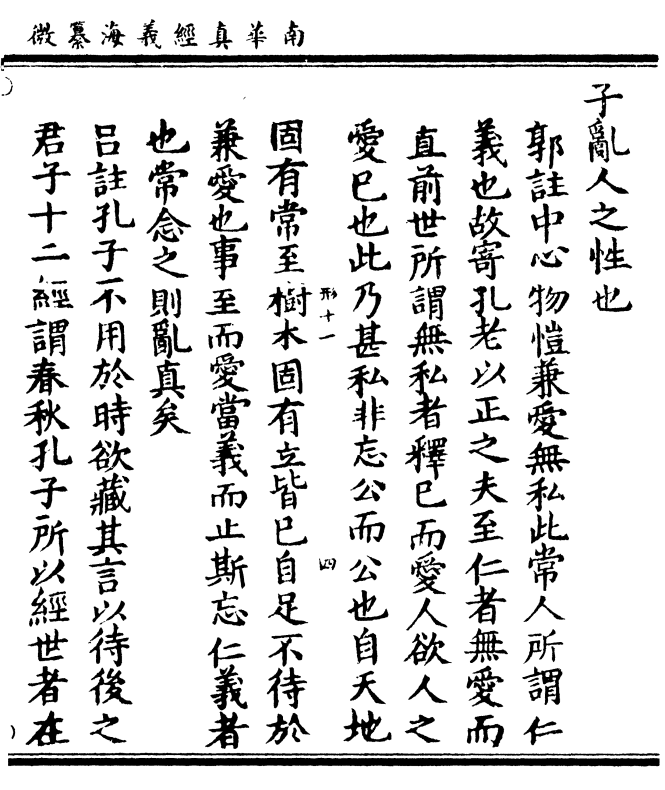 南華真經義海纂微
子亂人之性也
郭註中心物愷兼愛無私此常人所謂仁
義也故寄孔老以正之夫至仁者無愛而
直前世所謂無私者釋已而愛人欲人之
愛已也此乃甚私非忘公而公也自天地
固有常至樹木固有立皆已自足不待於
形十一
四
兼愛也事至而愛當義而止斯忘仁義者
也常念之則亂真矣
呂註孔子不用於時欲藏其言以待後之
君子十二經謂春秋孔子所以經世者在